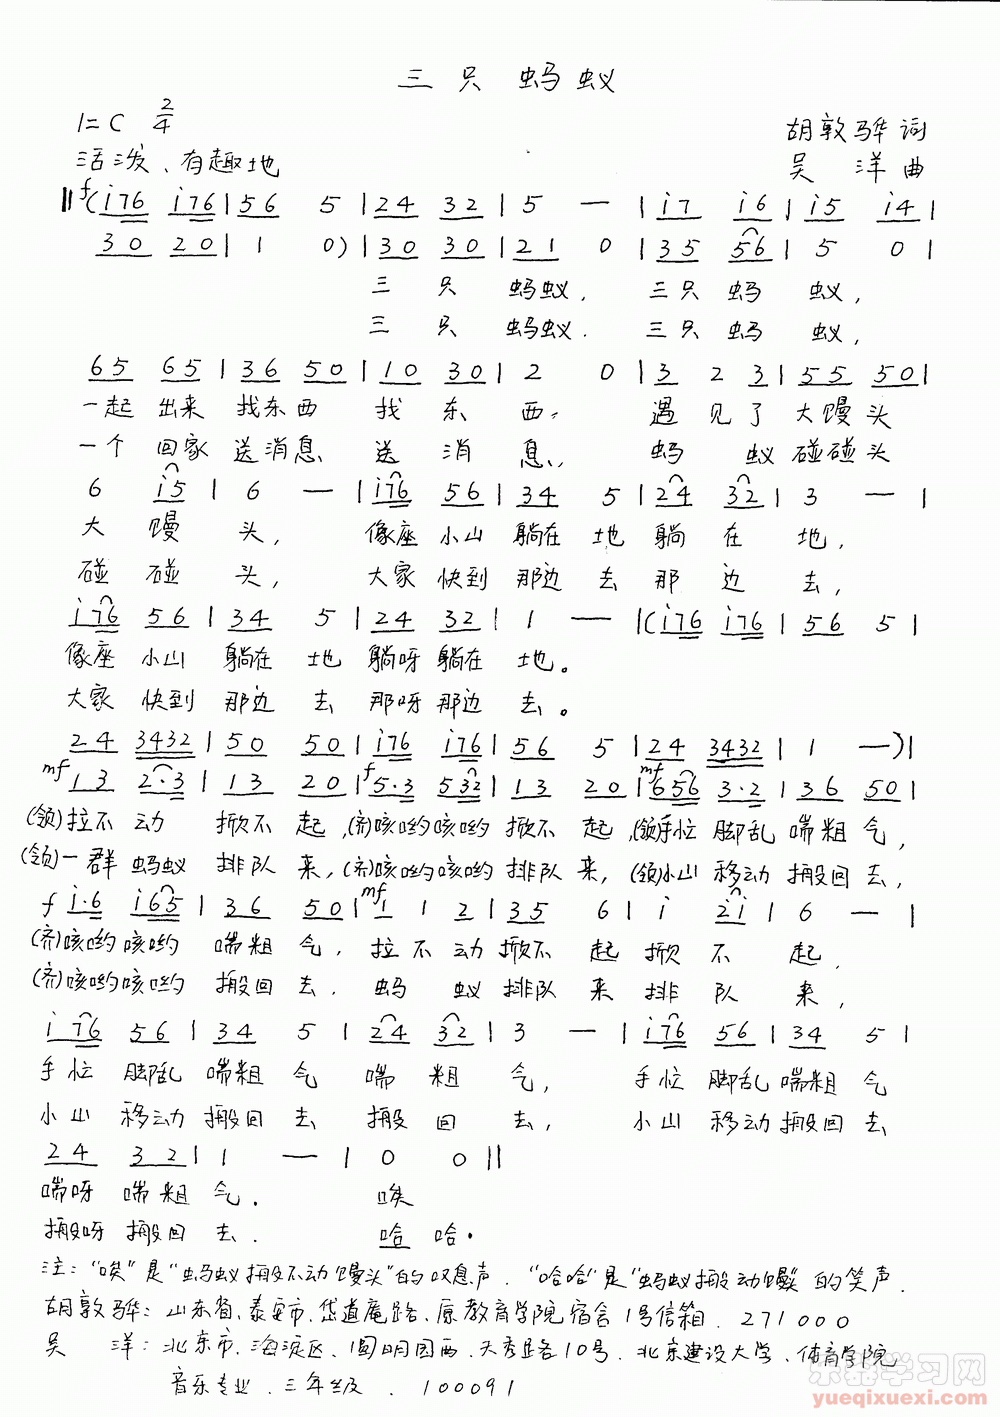 三只蚂蚁
1=C 2/4
胡敦骅 词
活泼、有趣地
吴洋 曲
‖f(i76 i76|56 5|24 32|5 —|i7 i6|i5 i4|
30 20|1 0)|30 30|21 0|35 56|5 0|
三只蚂蚁,三只蚂蚁,
三只蚂蚁.三只蚂蚁,
65 65|36 50|10 30|2 0|3 2 3|55 50|
一起出来找东西找东西,遇见了大馒头
一个回家送消息送消息,蚂蚁碰碰头
6 i5|6 —|i76 56|34 5|24 32|3 —|
大馒头,像座小山躺在地躺在地,
碰碰头,大家快到那边去那边去,
i76 56|34 5|24 32|1 —|(i76 i76|56 5|
像座小山躺在地躺呀躺在地。
大家快到那边去那呀那边去。
24 3432|50 50|i76 i76|56 5|24 3432|1 —)|
mf 13 2·3|13 20|f 5·3 532|13 20|mf 656 3·2|36 50|
(领)拉不动掀不起,(齐)咳哟咳哟掀不起,(领)手忙脚乱喘粗气,
(领)一群蚂蚁排队来,(齐)咳哟咳哟排队来,(领)小山移动搬回去,
f i·6 i65|36 50|mf 1 1 2|35 6|i 2i|6 —|
(齐)咳哟咳哟喘粗气,拉不动掀不起掀不起.
(齐)咳哟咳哟搬回去.蚂蚁排队来排队来,
i76 56|34 5|24 32|3 —|i76 56|34 5|
手忙脚乱喘粗气喘粗气,手忙脚乱喘粗气
小山移动搬回去搬回去,小山移动搬回去
24 32|1 —|0 0‖
喘呀喘粗气.唉
搬呀搬回去.哈哈.
注:"唉"是"蚂蚁搬不动馒头"的叹息声."哈哈"是"蚂蚁搬动馒头"的笑声.
胡敦骅:山东省、泰安市、岱道庵路、原教育学院宿舍1号信箱.271000
吴洋:北京市、海淀区、圆明园西、天秀路10号.北京建设大学、体育学院
音乐专业.三年级.100091
乐器学习网
yueqixuexi.com